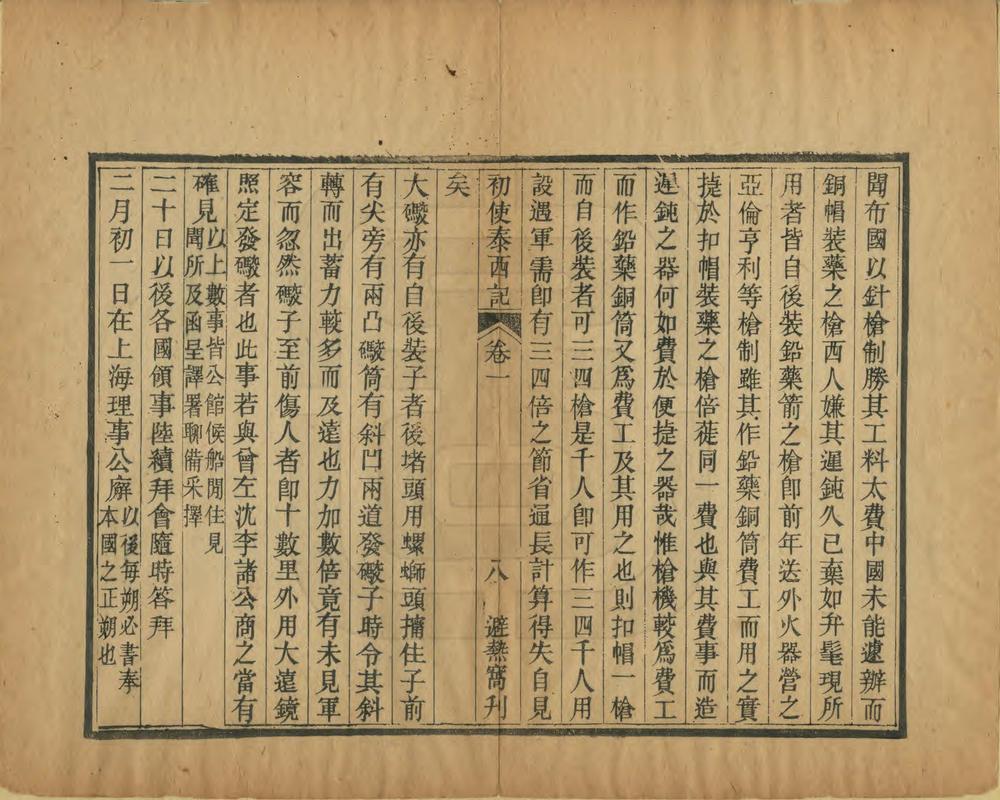 聞布國以針槍制勝其工料太費中國未能遽辦而
銅帽裝藥之槍西人嫌其遲鈍久已棄如弁髦現所
用者皆自後裝鉛藥箭之槍卽前年送外火器營之
亞倫亨利等槍制雖其作鉛藥銅筒費工而用之實
捷於扣帽裝藥之槍倍蓰同一費也與其費事而造
遲鈍之器何如費於便捷之器哉惟槍機較爲費工
而作鉛藥銅筒又爲費工及其用之也則扣帽一槍
而自後裝者可三四槍是千人卽可作三四千人用
設遇軍需卽有三四倍之節省通長計算得失自見
初使泰西記 卷一 八 避熱窩刋
矣
大礮亦有自後裝子者後堵頭用螺螄頭擁住子前
有尖旁有兩凸礮筒有斜凹兩道發礮子時令其斜
轉而出蓄力較多而及遠也力加數倍竟有未見軍
容而忽然礮子至前傷人者卽十數里外用大遠鏡
照定發礮者也此事若與曾左沈李諸公商之當有
確見以上數事皆公館候船閒住見
聞所及函呈譯署聊備采擇
二十日以後各國領事陸續拜會隨時答拜
二月初一日在上海理事公廨以後每朔必書奉
本國之正朔也